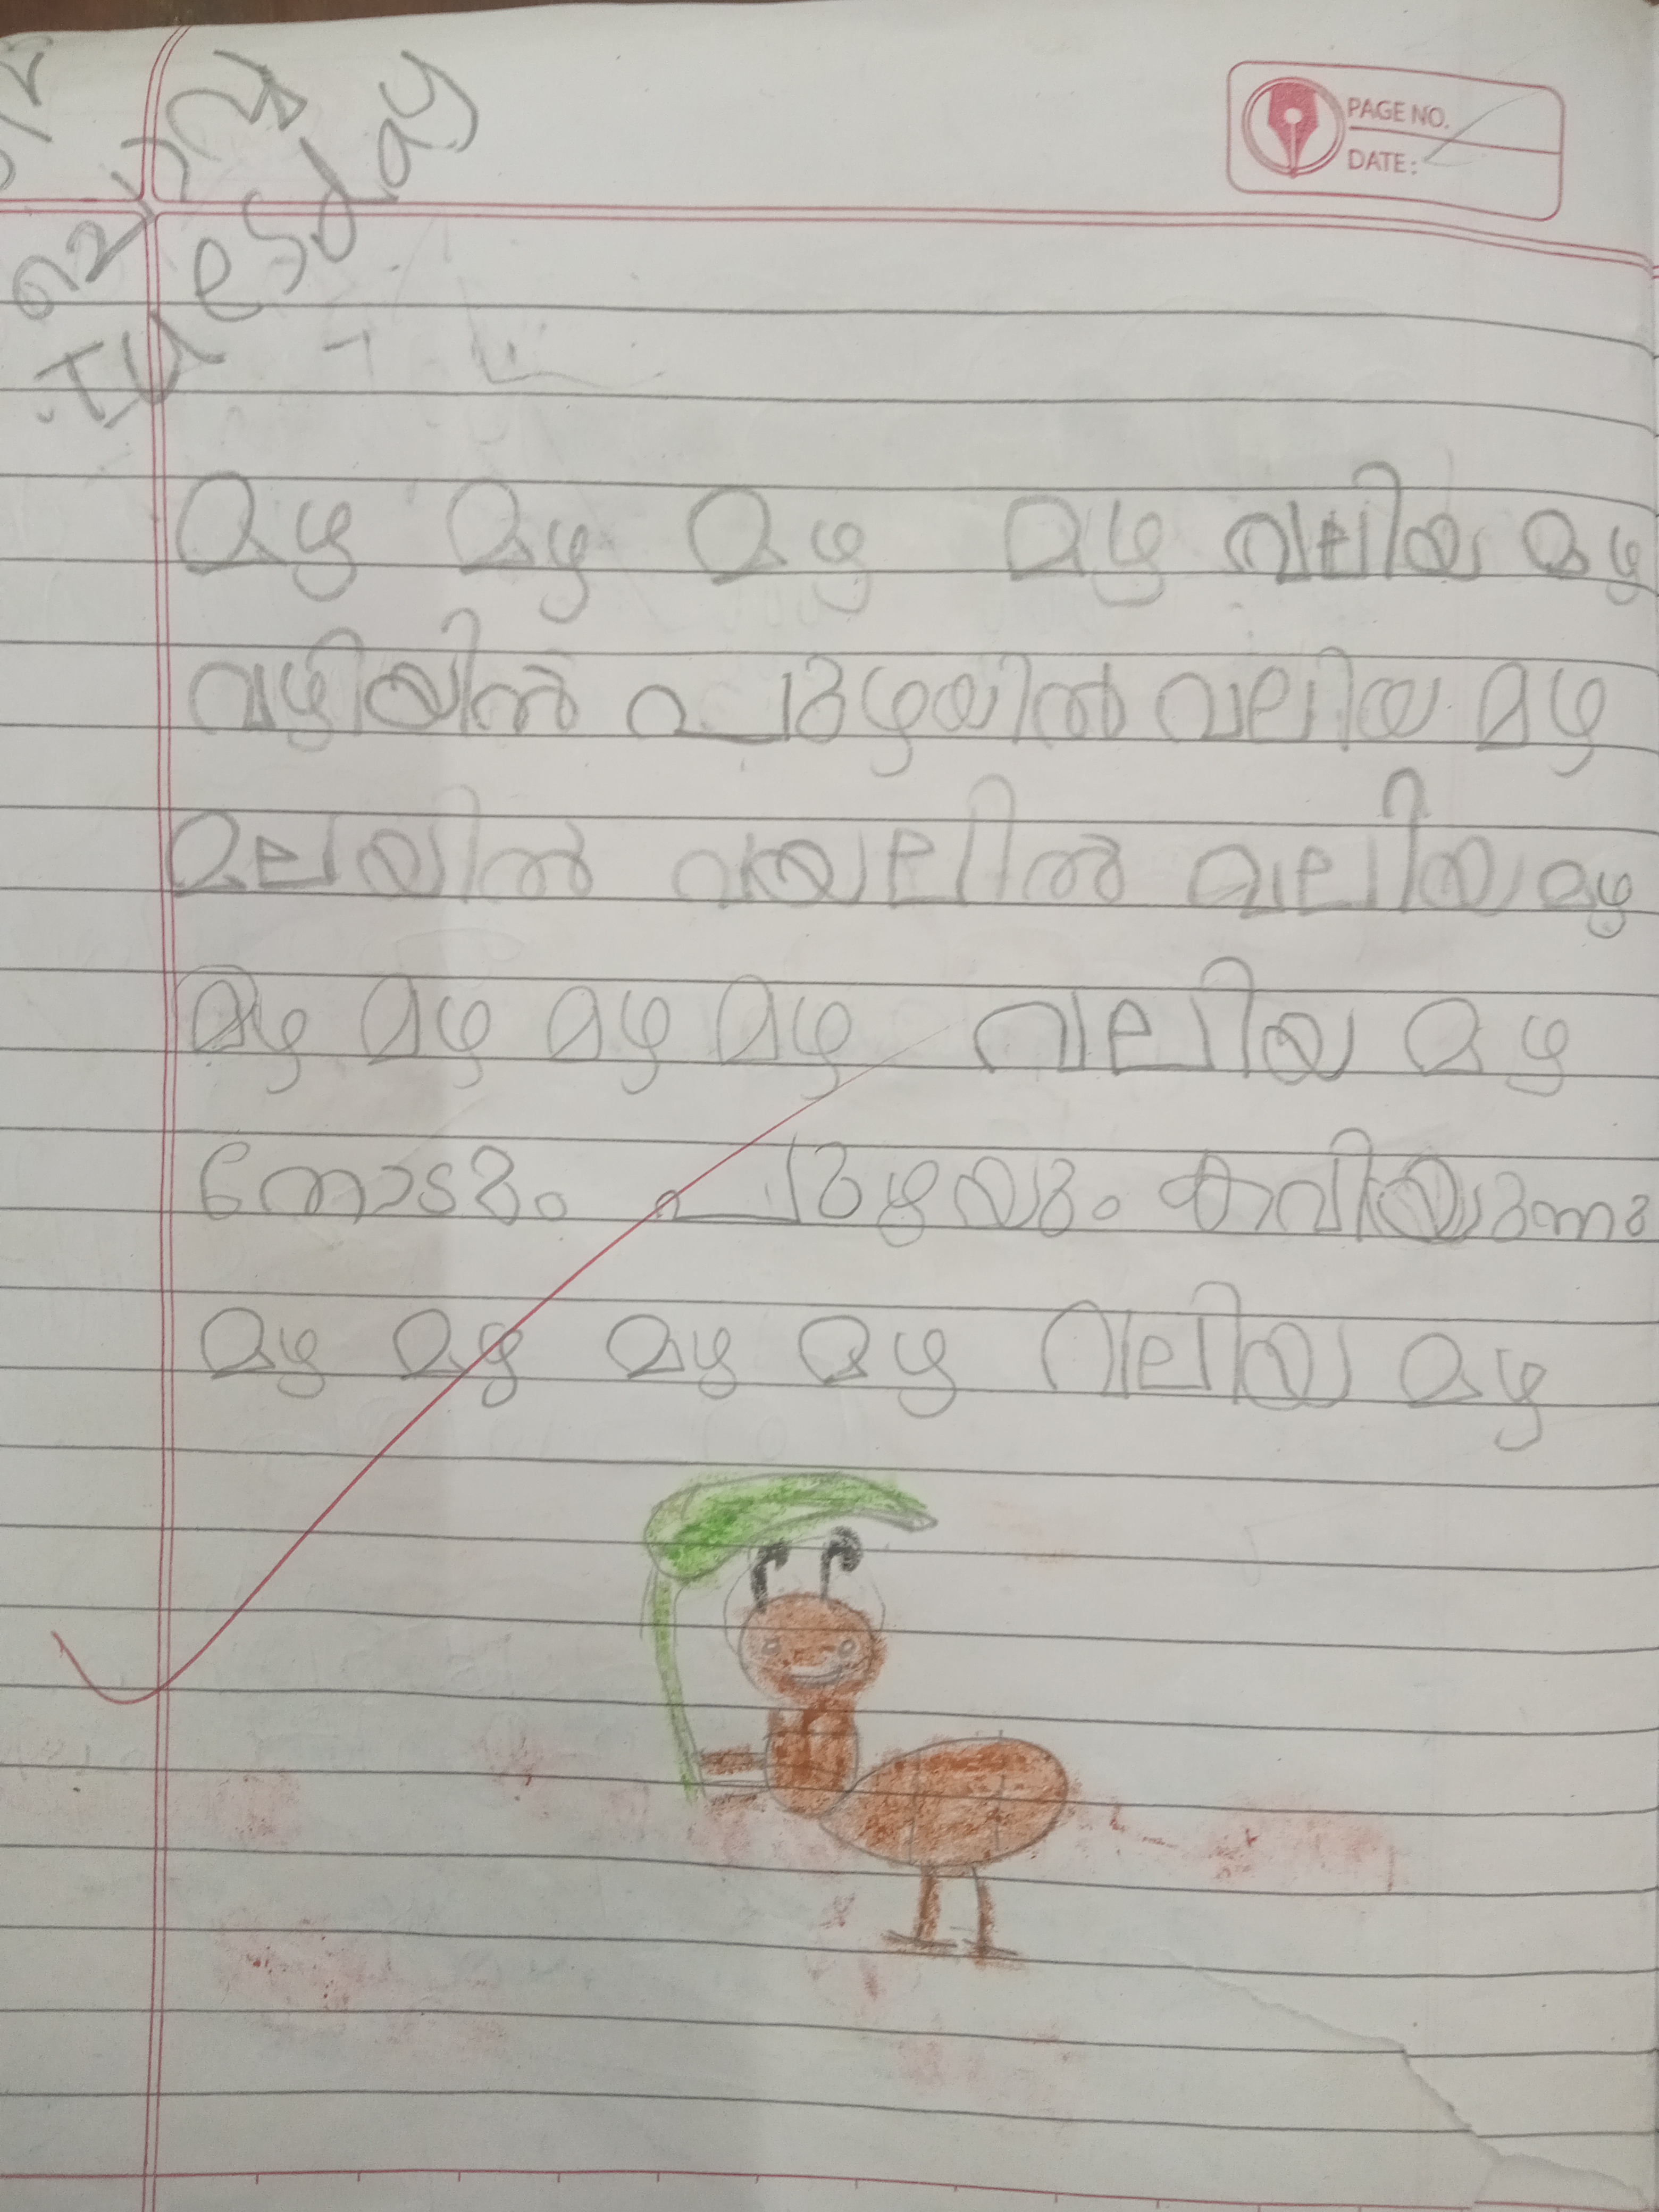 Tuesday
PAGE NO.
DATE:
മഴ മഴ മഴ മഴ വലിയ മഴ
വഴിയിൽ പുഴയിൽ വലിയ മഴ
മലയിൽ വയലിൽ വലിയ മഴ
മഴ മഴ മഴ മഴ വലിയ മഴ
തോടും പുഴയും കവിയുന്നു
മഴ മഴ മഴ മഴ വലിയ മഴ